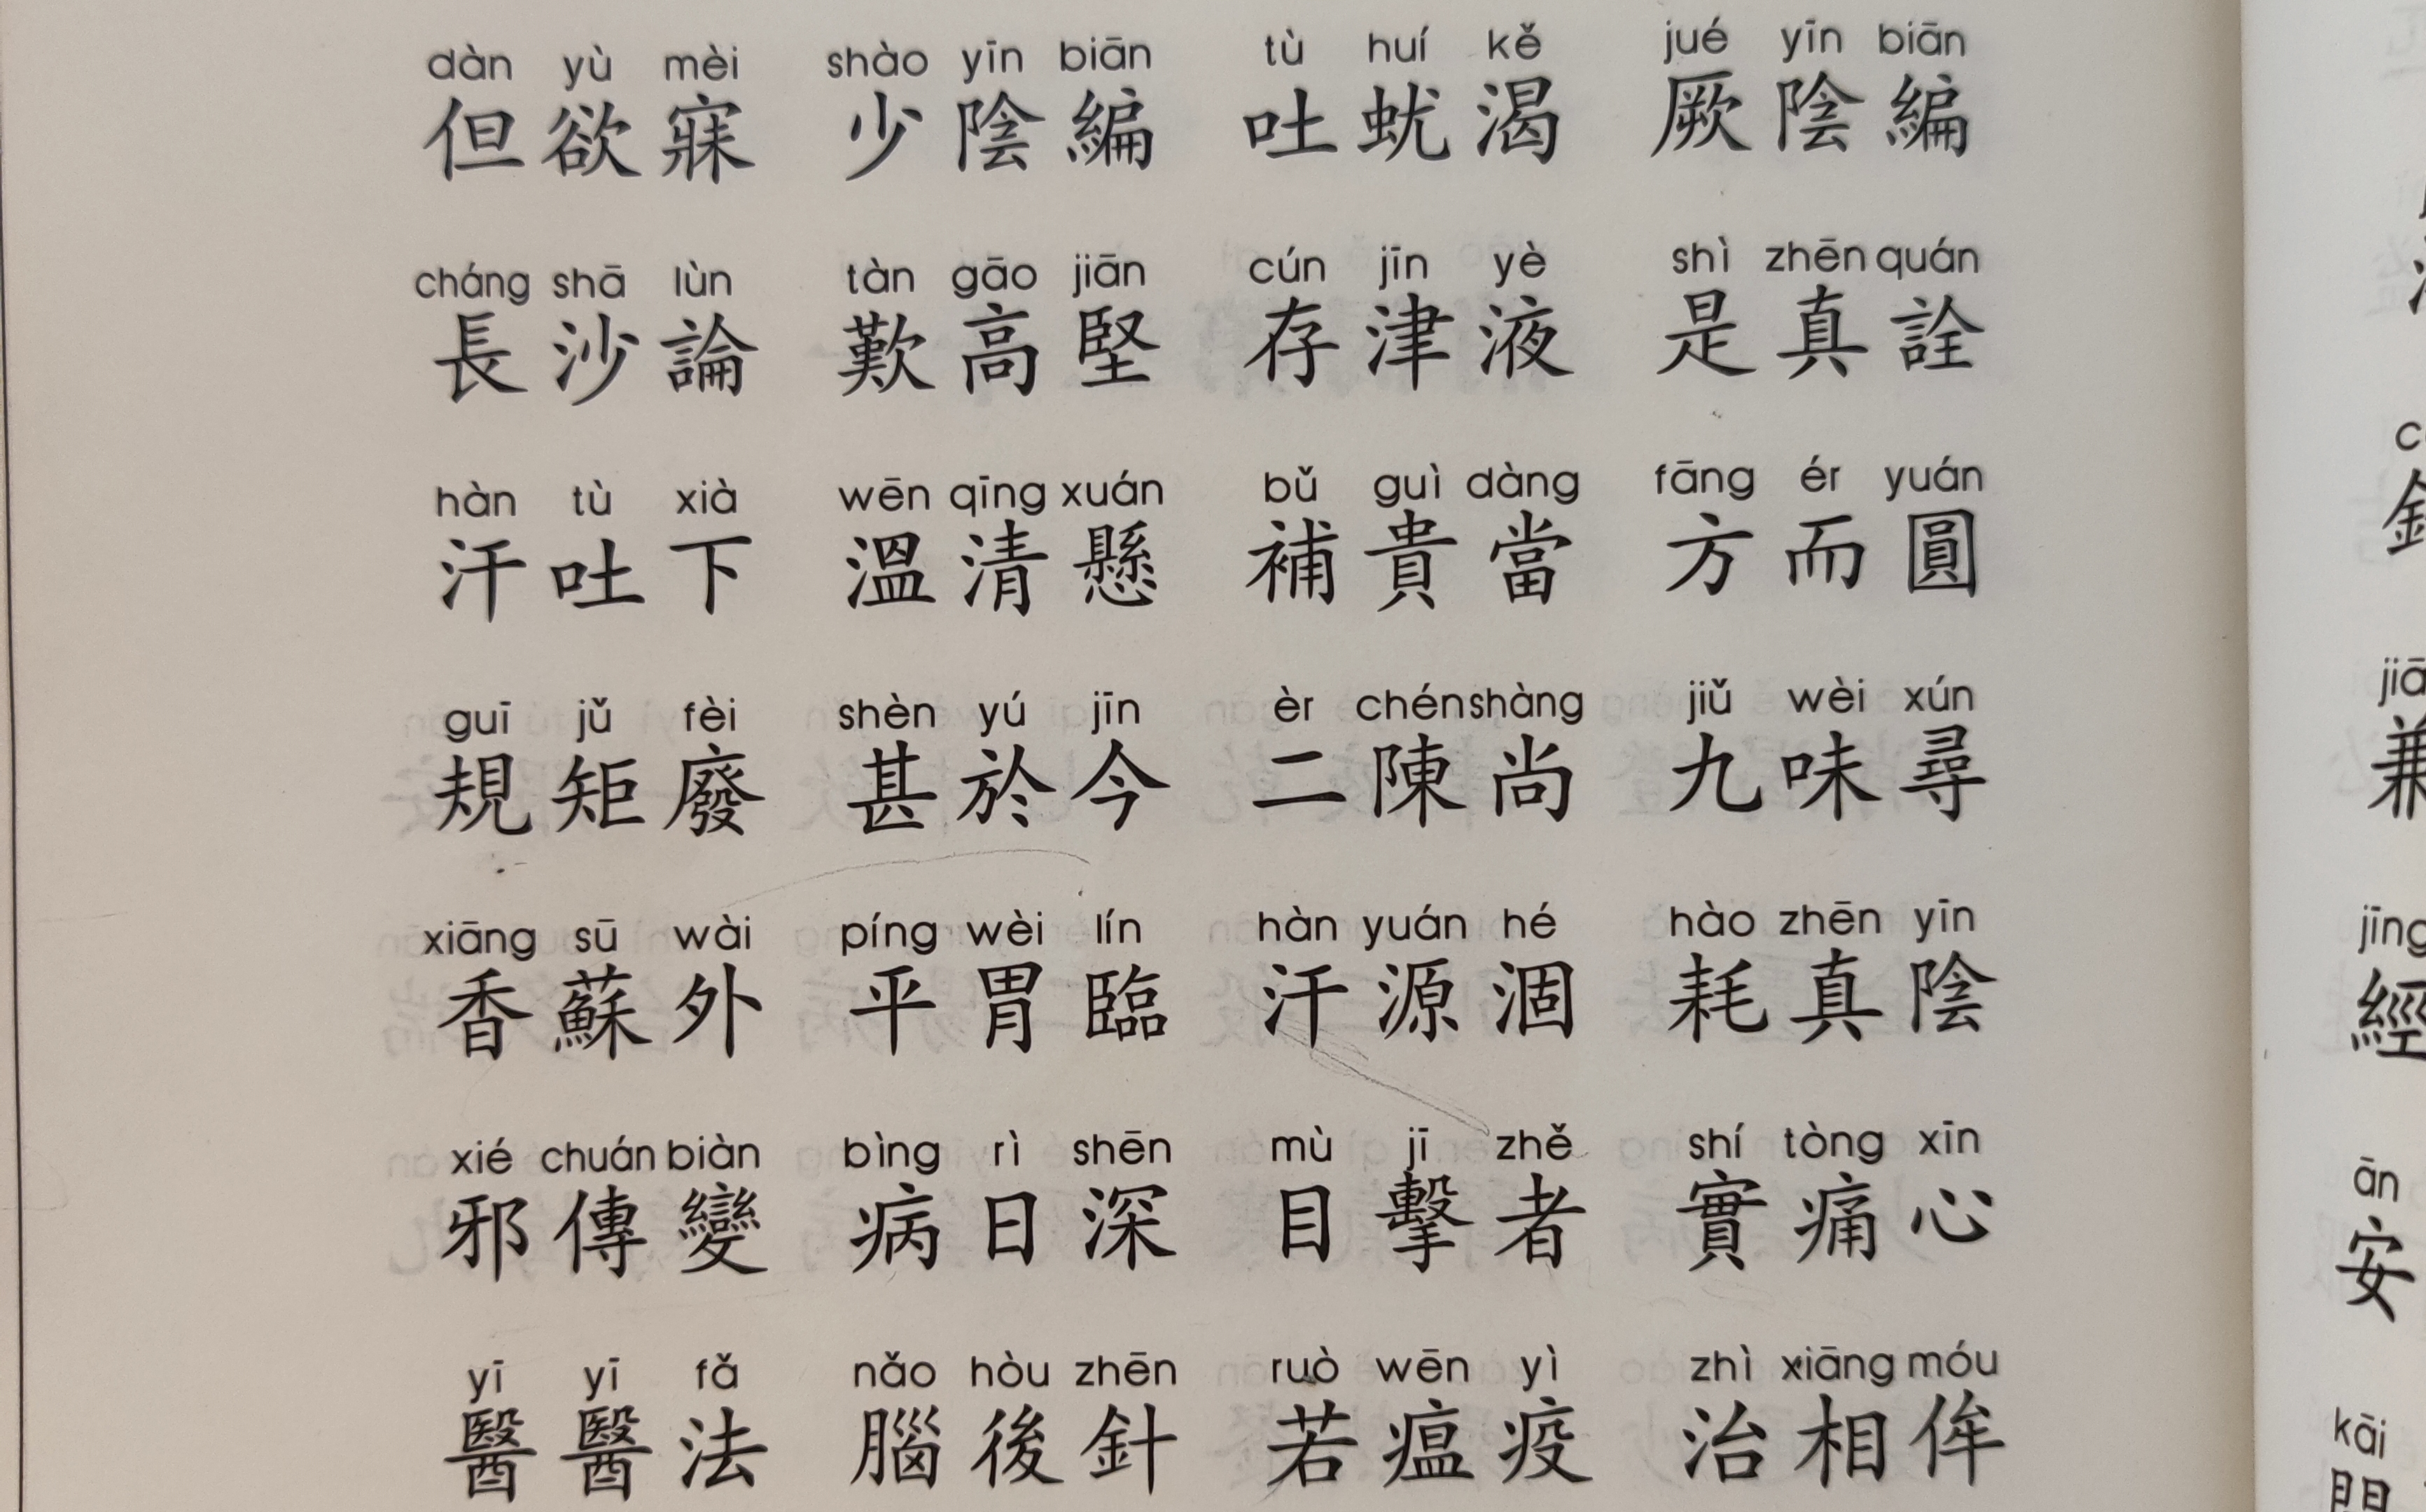 dàn yù mèi shào yīn biān tù huí kě jué yīn biān
但欲寐 少陰編 吐蚘渴 厥陰編
cháng shā lùn tàn gāo jiān cún jīn yè shì zhēn quán
長沙論 歎高堅 存津液 是真詮
hàn tù xià wēn qīng xuán bǔ guì dàng fāng ér yuán
汗吐下 溫清懸 補貴當 方而圓
guī jǔ fèi shèn yú jīn èr chén shàng jiǔ wèi xún
規矩廢 甚於今 二陳尚 九味尋
xiāng sū wài píng wèi lín hàn yuán hé hào zhēn yīn
香蘇外 平胃臨 汗源涸 耗真陰
xié chuán biàn bìng rì shēn mù jī zhě shí tòng xīn
邪傳變 病日深 目擊者 實痛心
yī yī fǎ nǎo hòu zhēn ruò wēn yì zhì xiāng móu
醫醫法 腦後針 若瘟疫 治相侔
兼
jīng
經
ān
安
kāi